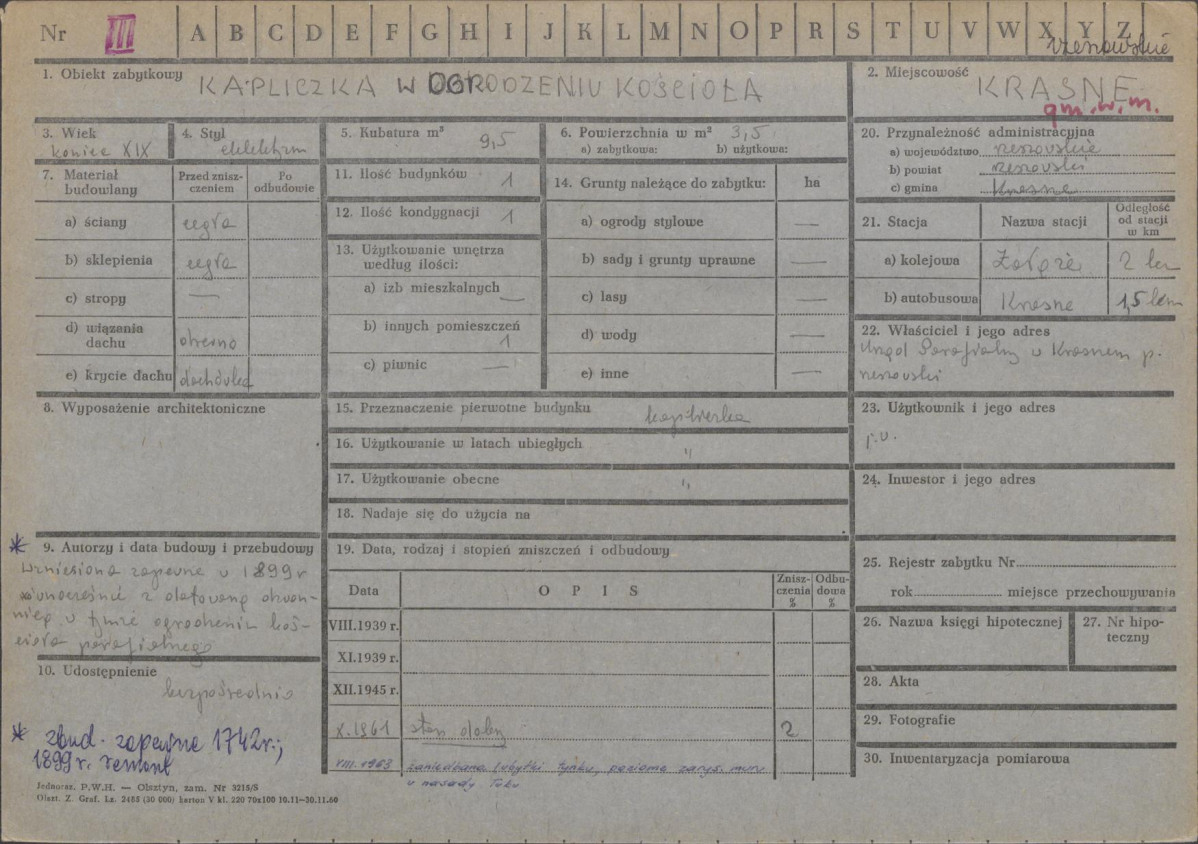 Nr III A B C D E F G H I J K L M N O P R S T U V W X Y Z
rzeszowskie
1. Obiekt zabytkowy KAPLICZKA W OGRODZENIU KOŚCIOŁA
2. Miejscowość KRASNE
gm. w. m.
3. Wiek koniec XIX
4. Styl eklektyzm
5. Kubatura m³ 9,5
6. Powierzchnia w m² 3,5
a) zabytkowa: b) użytkowa:
7. Materiał budowlany
Przed zniszczeniem
Po odbudowie
a) ściany cegła
b) sklepienia cegła
c) stropy —
d) wiązania dachu drewno
e) krycie dachu dachówka
8. Wyposażenie architektoniczne
* 9. Autorzy i data budowy i przebudowy
Wzniesiona zapewne w 1899 r
równocześnie z datowaną dzwon-
nicą w tymże ogrodzeniu koś-
cioła parafialnego
10. Udostępnienie
bezpośrednio
* zbud. zapewne 1742 r.;
1899 r. remont
11. Ilość budynków 1
12. Ilość kondygnacji 1
13. Użytkowanie wnętrza
według ilości:
a) izb mieszkalnych —
b) innych pomieszczeń 1
c) piwnic —
14. Grunty należące do zabytku: ha
a) ogrody stylowe —
b) sady i grunty uprawne —
c) lasy —
d) wody —
e) inne —
15. Przeznaczenie pierwotne budynku kapliczka
16. Użytkowanie w latach ubiegłych "
17. Użytkowanie obecne "
18. Nadaje się do użycia na
19. Data, rodzaj i stopień zniszczeń i odbudowy
Data OPIS Zniszczenia % Odbudowa %
VIII.1939 r.
XI.1939 r.
XII.1945 r.
X.1961 stan dobry 2
VIII.1963 zaniedbana (ubytki tynku, poziome zarys. muru
u nasady łuku
20. Przynależność administracyjna
a) województwo rzeszowskie
b) powiat rzeszowski
c) gmina Krasne
21. Stacja Nazwa stacji Odległość od stacji w km
a) kolejowa Załęże 2 km
b) autobusowa Krasne 1,5 km
22. Właściciel i jego adres
Urząd Parafialny w Krasnem p.
rzeszowski
23. Użytkownik i jego adres
j.w.
24. Inwestor i jego adres
25. Rejestr zabytku Nr
rok miejsce przechowywania
26. Nazwa księgi hipotecznej
27. Nr hipoteczny
28. Akta
29. Fotografie
30. Inwentaryzacja pomiarowa
Jednoraz. P.W.H. — Olsztyn, zam. Nr 3215/S
Olszt. Z. Graf. Lz. 2485 (30 000) karton V kl. 220 70x100 10.11—30.11.60